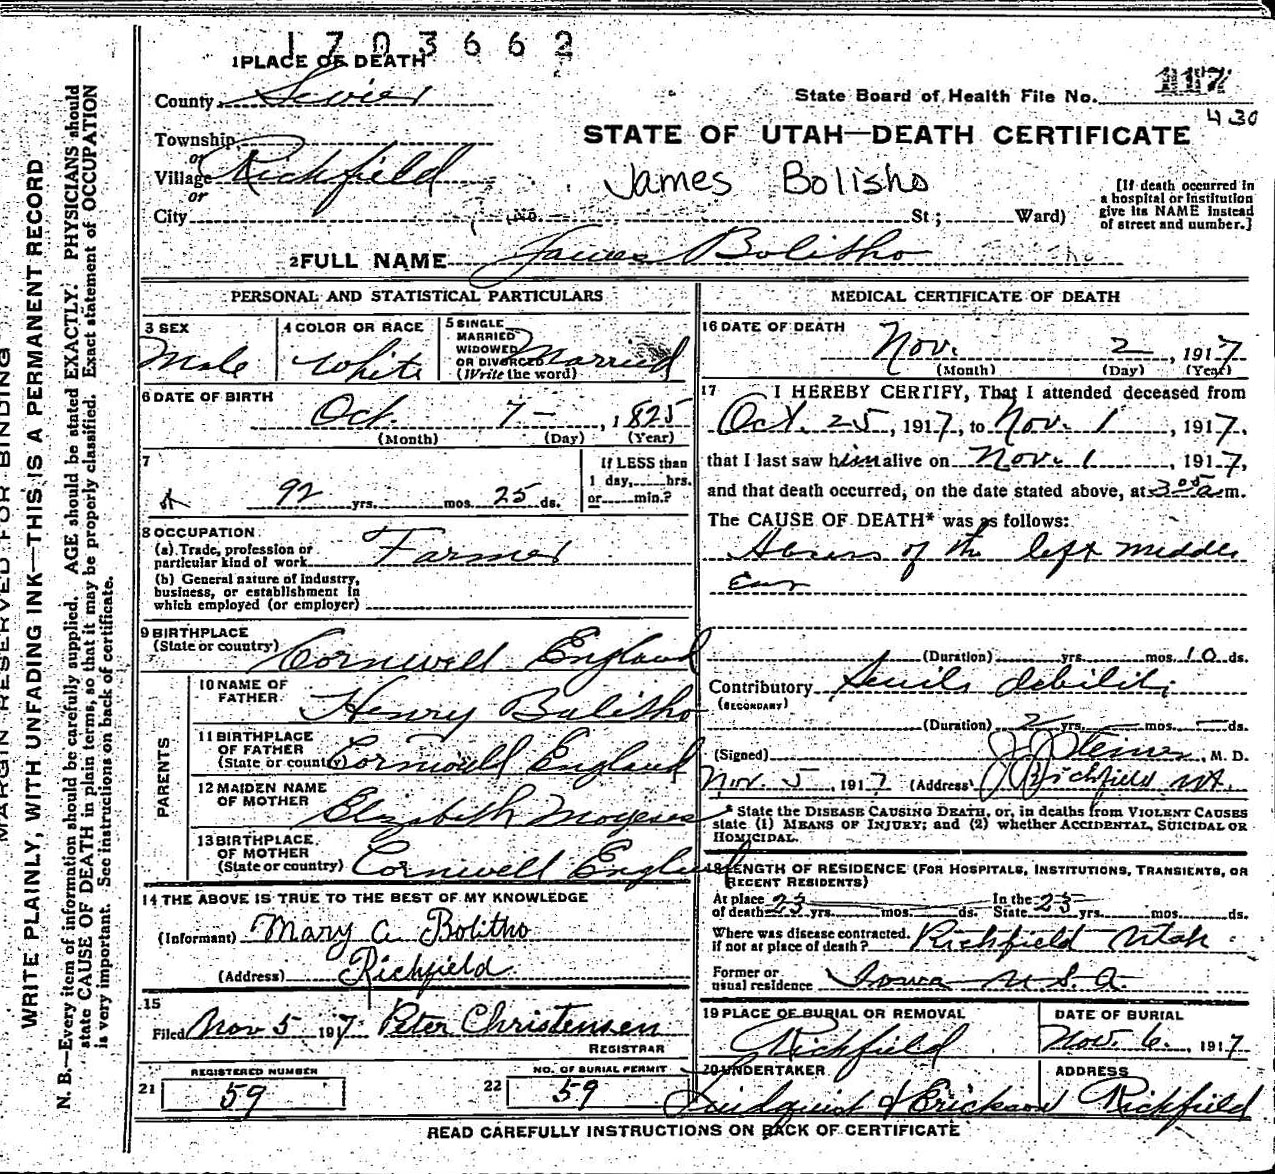 1703662
1 PLACE OF DEATH
County Sevier
State Board of Health File No. 117
430
Township
or
Village Richfield
or
STATE OF UTAH—DEATH CERTIFICATE
James Bolisho
[If death occurred in
a hospital or institution
give its NAME instead
of street and number.]
City No. St; Ward)
2 FULL NAME James Bolitho
PERSONAL AND STATISTICAL PARTICULARS
3 SEX
Male
4 COLOR OR RACE
White
5 SINGLE
MARRIED
WIDOWED
OR DIVORCED
(Write the word)
Married
6 DATE OF BIRTH
Oct. 7- , 1825
(Month) (Day) (Year)
7
92 yrs. mos. 25 ds.
If LESS than
1 day, hrs.
or min.?
8 OCCUPATION
(a) Trade, profession or
particular kind of work Farmer
(b) General nature of industry,
business, or establishment in
which employed (or employer)
9 BIRTHPLACE
(State or country) Cornwell England
PARENTS
10 NAME OF
FATHER Henry Bolitho
11 BIRTHPLACE
OF FATHER
(State or country) Cornwell England
12 MAIDEN NAME
OF MOTHER Elizabeth
13 BIRTHPLACE
OF MOTHER
(State or country) Cornwell England
14 THE ABOVE IS TRUE TO THE BEST OF MY KNOWLEDGE
(Informant) Mary A Bolitho
(Address) Richfield
15
Filed Nov 5 1917 Peter Christensen
REGISTRAR
21 REGISTERED NUMBER
59
22 NO. OF BURIAL PERMIT
59
MEDICAL CERTIFICATE OF DEATH
16 DATE OF DEATH
Nov. 2 , 1917
(Month) (Day) (Year)
17 I HEREBY CERTIFY, That I attended deceased from
Oct. 25 , 1917, to Nov. 1 , 1917,
that I last saw him alive on Nov. 1 , 1917,
and that death occurred, on the date stated above, at 3 05 a m.
The CAUSE OF DEATH* was as follows:
of the left middle
Ear
(Duration) yrs. mos. 10 ds.
Contributory Senile debility
(SECONDARY)
(Duration) 2 yrs. — mos. — ds.
(Signed) J J Steiner, M. D.
Nov. 5 , 1917 (Address) Richfield Ut.
* State the DISEASE CAUSING DEATH, or, in deaths from VIOLENT CAUSES
state (1) MEANS OF INJURY; and (2) whether ACCIDENTAL, SUICIDAL OR
HOMICIDAL.
18 LENGTH OF RESIDENCE (FOR HOSPITALS, INSTITUTIONS, TRANSIENTS, OR
RECENT RESIDENTS)
At place
of death 25 yrs. mos. ds.
In the
State 25 yrs. mos. ds.
Where was disease contracted.
if not at place of death? Richfield Utah
Former or
usual residence Iowa U.S.A.
19 PLACE OF BURIAL OR REMOVAL
Richfield
DATE OF BURIAL
Nov. 6. , 1917
20 UNDERTAKER
Lindquist & Erickson
ADDRESS
Richfield
READ CAREFULLY INSTRUCTIONS ON BACK OF CERTIFICATE
MARGIN RESERVED FOR BINDING
WRITE PLAINLY, WITH UNFADING INK—THIS IS A PERMANENT RECORD
N. B.—Every item of information should be carefully supplied. AGE should be stated EXACTLY. PHYSICIANS should
state CAUSE OF DEATH in plain terms, so that it may be properly classified. Exact statement of OCCUPATION
is very important. See instructions on back of certificate.